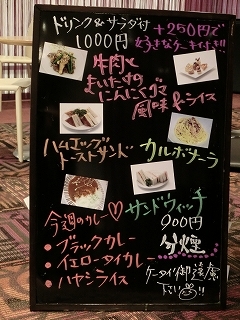 ドリンク&サラダ付
1000円
+250円で
好きなケーキ付き!!
牛肉と
まいたけの
にんにくゴマ
風味&ライス
ハムエッグ
トーストサンド
カルボナーラ
今週のカレー♡
・ブラックカレー
・イエロータイカレー
・ハヤシライス
サンドウィッチ
900円
分煙
ケータイ御遠慮
下さい!!